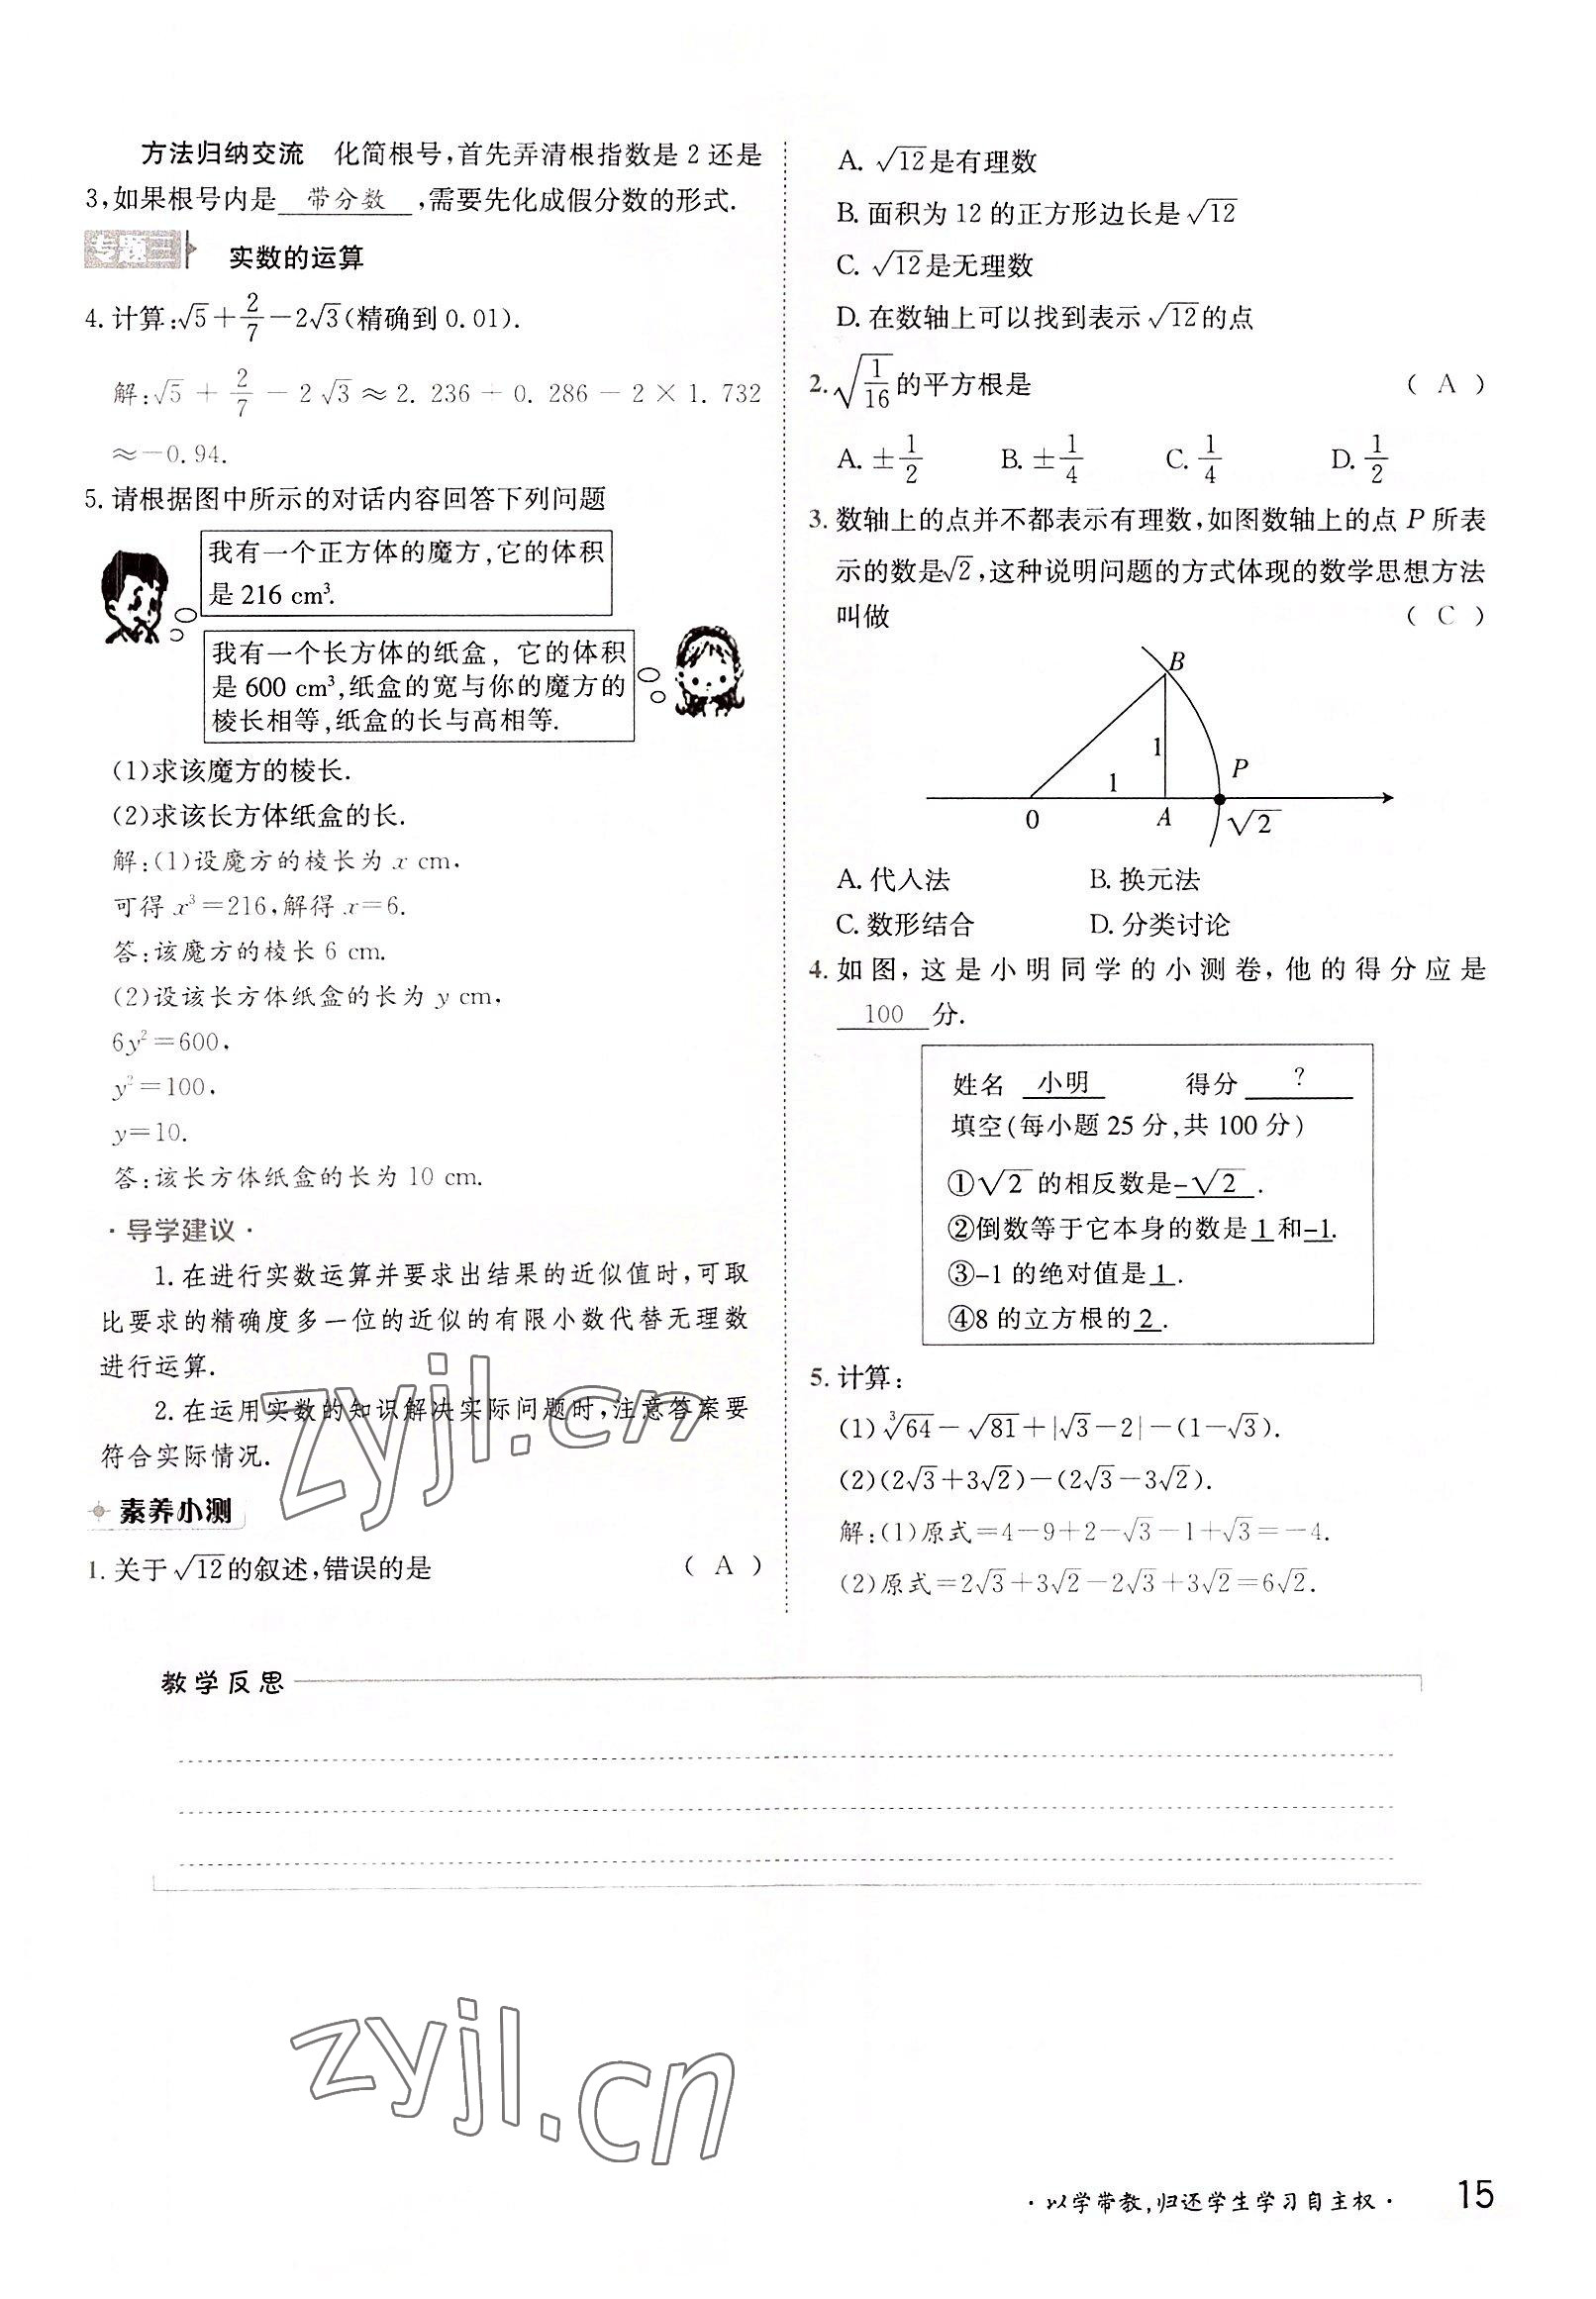 方法归纳交流 化简根号,首先弄清根指数是 2 还是
3,如果根号内是 带分数 ,需要先化成假分数的形式.
专题三 实数的运算
4. 计算:√5+2/7-2√3(精确到 0.01).
解:√5+2/7-2√3≈2.236+0.286-2×1.732
≈-0.94.
5. 请根据图中所示的对话内容回答下列问题
我有一个正方体的魔方,它的体积
是 216 cm³.
我有一个长方体的纸盒, 它的体积
是 600 cm³,纸盒的宽与你的魔方的
棱长相等,纸盒的长与高相等.
(1)求该魔方的棱长.
(2)求该长方体纸盒的长.
解:(1)设魔方的棱长为 x cm,
可得 x³=216,解得 x=6.
答:该魔方的棱长 6 cm.
(2)设该长方体纸盒的长为 y cm,
6y²=600,
y²=100,
y=10.
答:该长方体纸盒的长为 10 cm.
·导学建议·
1. 在进行实数运算并要求出结果的近似值时,可取
比要求的精确度多一位的近似的有限小数代替无理数
进行运算.
2. 在运用实数的知识解决实际问题时,注意答案要
符合实际情况.
素养小测
1. 关于√12的叙述,错误的是 ( A )
A. √12是有理数
B. 面积为 12 的正方形边长是√12
C. √12是无理数
D. 在数轴上可以找到表示√12的点
2. √(1/16)的平方根是 ( A )
A. ±1/2 B. ±1/4 C. 1/4 D. 1/2
3. 数轴上的点并不都表示有理数,如图数轴上的点 P 所表
示的数是√2,这种说明问题的方式体现的数学思想方法
叫做 ( C )
B
1
P
1
0 A √2
A. 代入法 B. 换元法
C. 数形结合 D. 分类讨论
4. 如图,这是小明同学的小测卷,他的得分应是
100 分.
姓名 小明 得分 ?
填空(每小题 25 分,共 100 分)
①√2 的相反数是-√2 .
②倒数等于它本身的数是 1 和-1.
③-1 的绝对值是 1 .
④8 的立方根的 2 .
5. 计算:
(1)∛64-√81+|√3-2|-(1-√3).
(2)(2√3+3√2)-(2√3-3√2).
解:(1)原式=4-9+2-√3-1+√3=-4.
(2)原式=2√3+3√2-2√3+3√2=6√2.
zyjl.cn
教学反思
zyjl.cn
·以学带教,归还学生学习自主权· 15